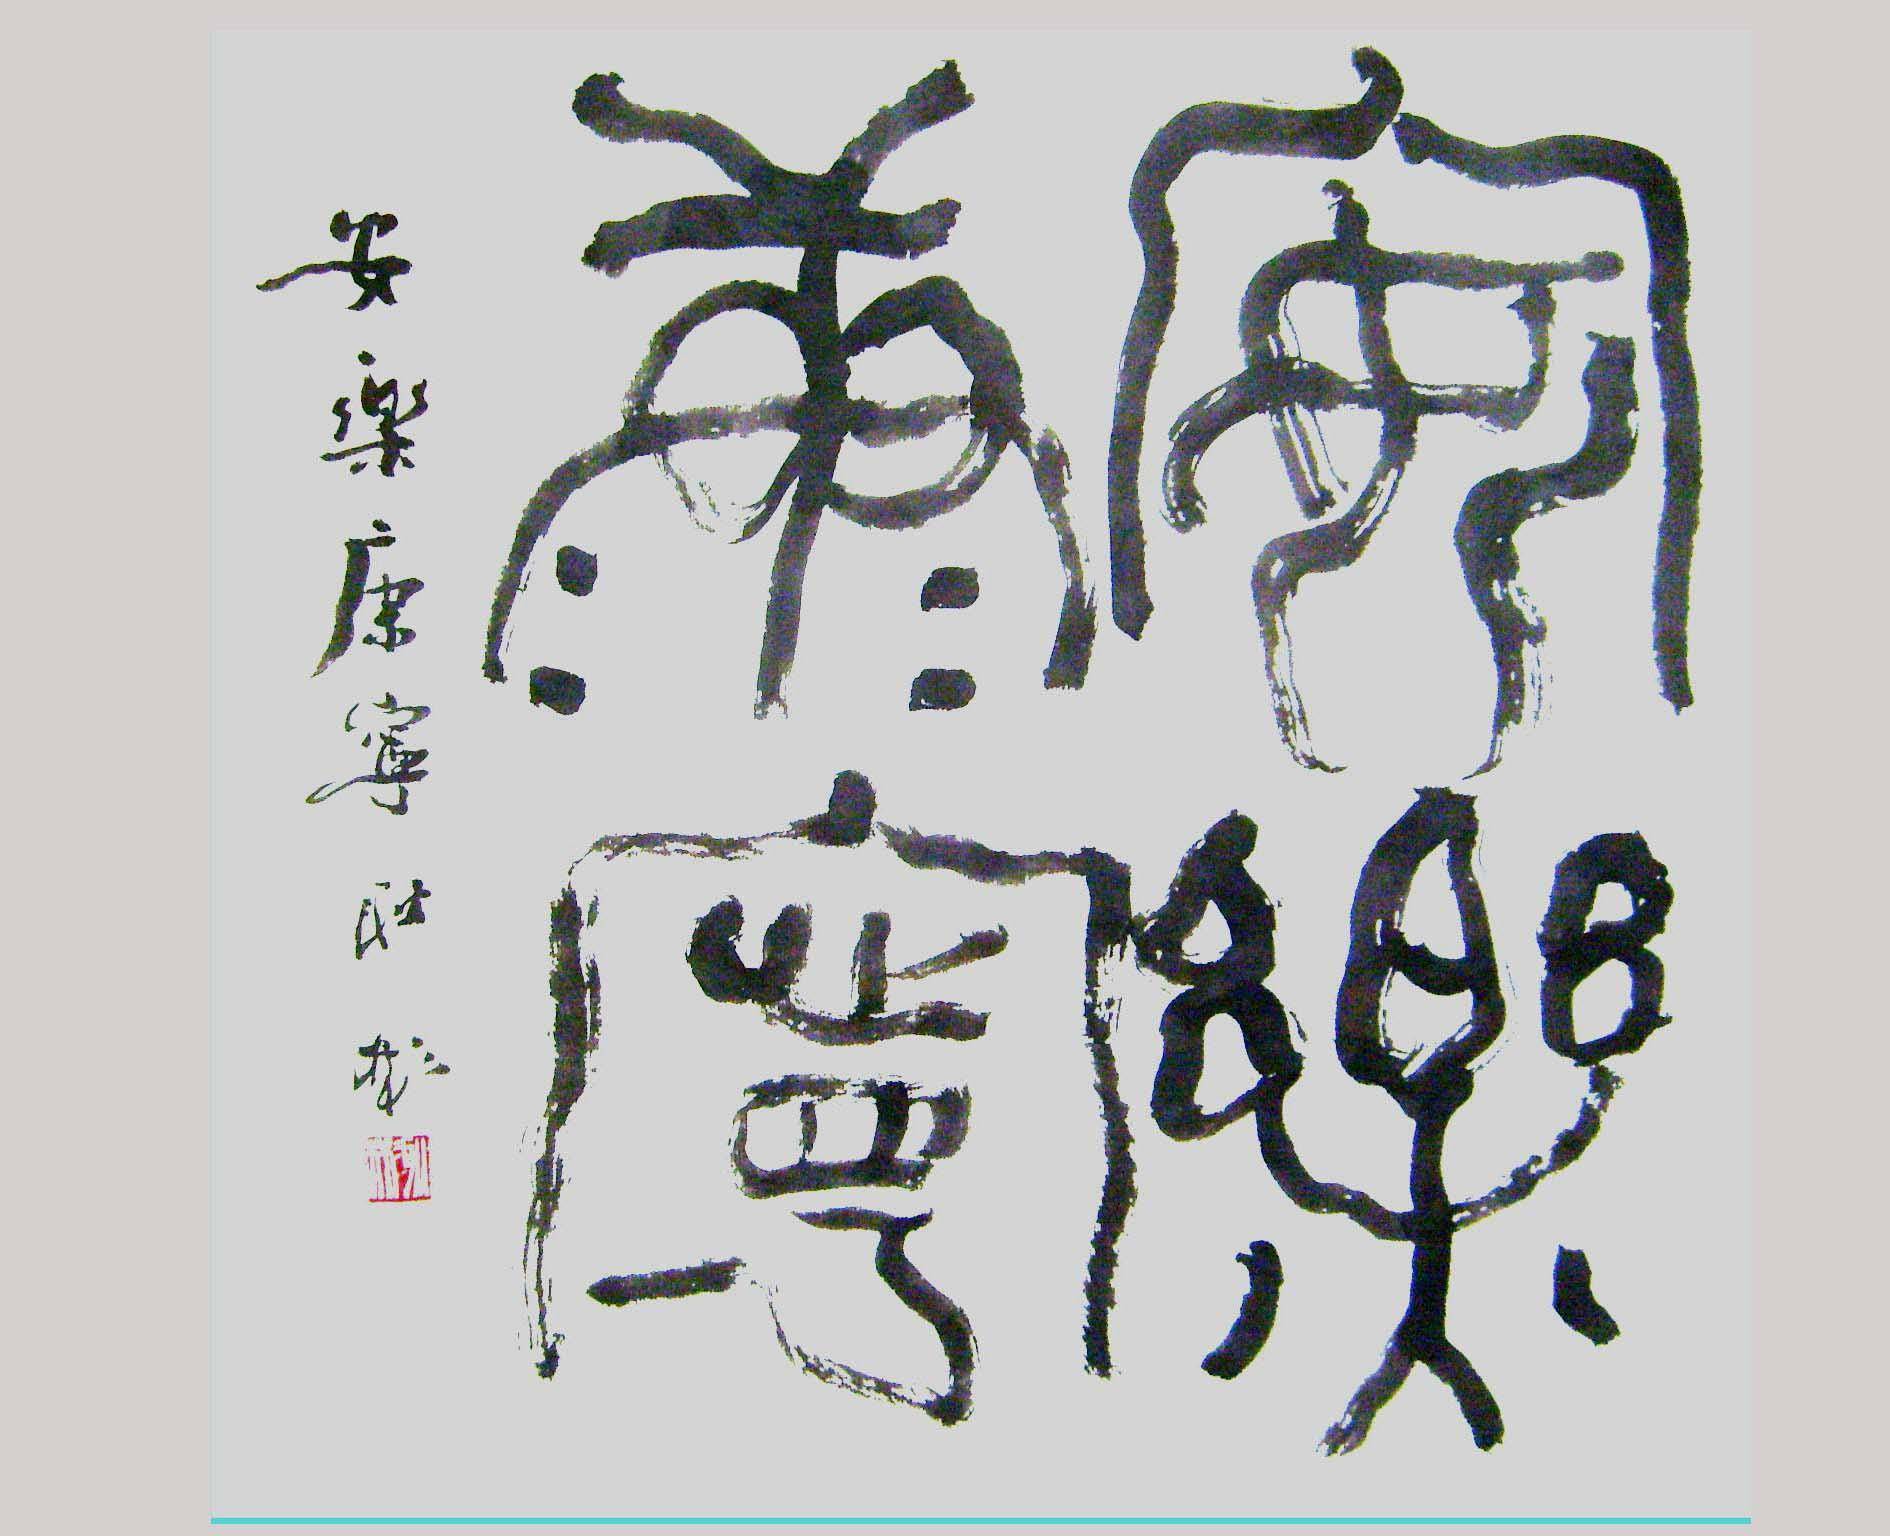 安樂
康寧
安樂康寧